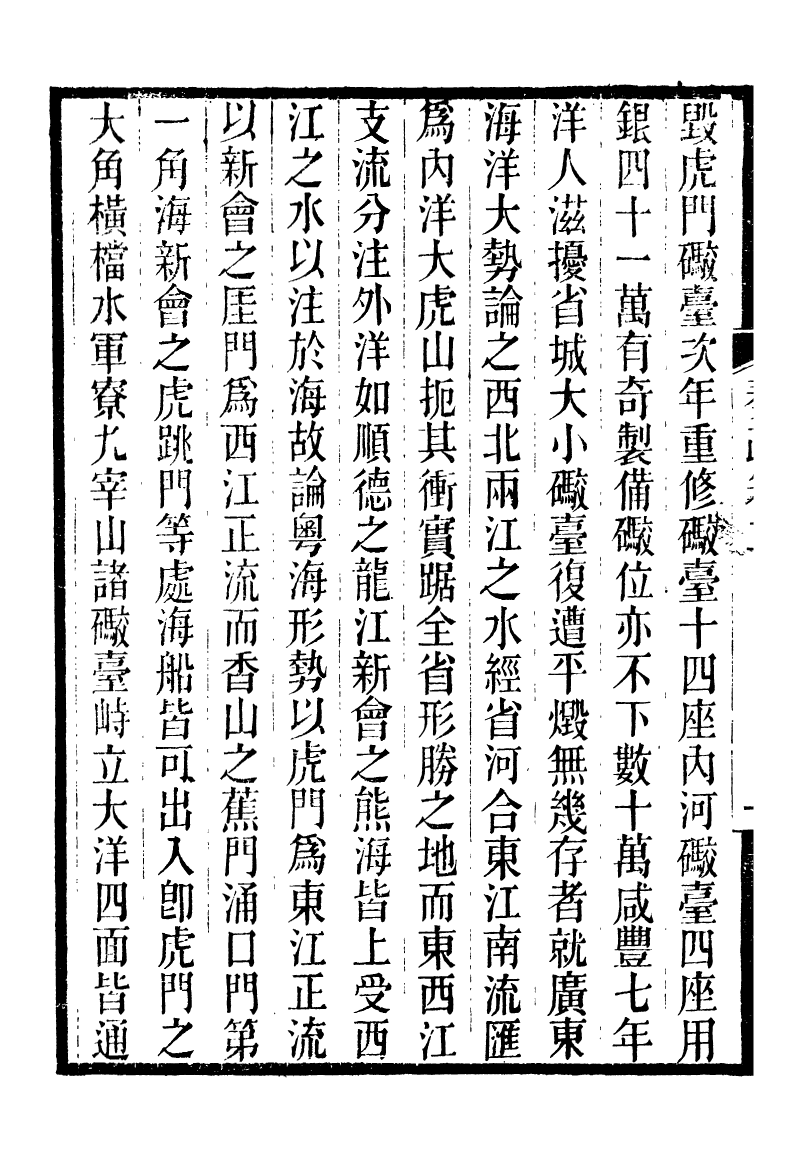 毀虎門礮臺次年重修礮臺十四座內河礮臺四座用
銀四十一萬有奇製備礮位亦不下數十萬咸豐七年
洋人滋擾省城大小礮臺復遭平燬無幾存者就廣東
海洋大勢論之西北兩江之水經省河合東江南流匯
爲內洋大虎山扼其衝實踞全省形勝之地而東西江
支流分注外洋如順德之龍江新會之熊海皆上受西
江之水以注於海故論粵海形勢以虎門爲東江正流
以新會之厓門爲西江正流而香山之蕉門涌口門第
一角海新會之虎跳門等處海船皆可出入卽虎門之
大角橫檔水軍寮九宰山諸礮臺峙立大洋四面皆通